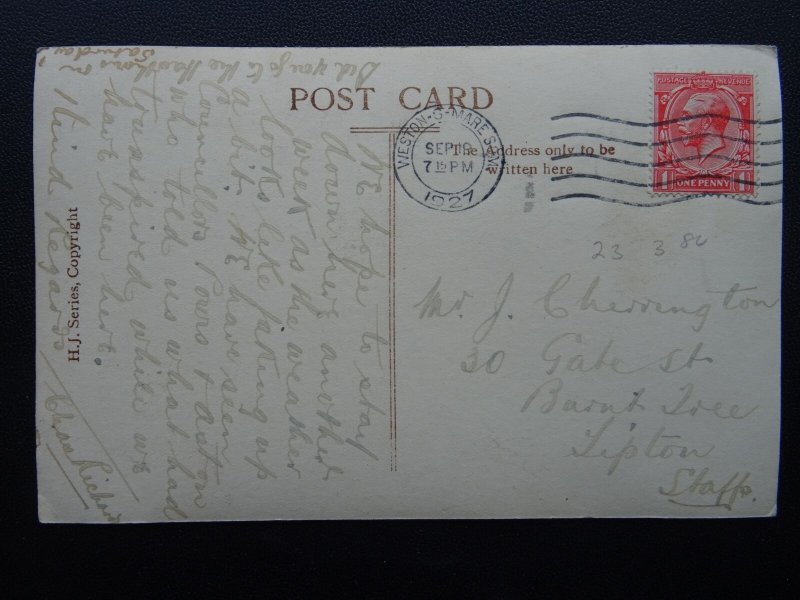 POST CARD
The Address only to be
written here
WESTON-S-MARE SOM
SEP 19
7 15 PM
1927
POSTAGE REVENUE
1 ONE PENNY 1
23 3 80
Mr J. Cherrington
30 Gate St
Burnt Tree
Tipton
Staffs.
H.J. Series, Copyright
We hope to stay
down here another
week as the weather
looks like faking up
a bit. We have seen
Councillors Powis + aston
who told us what had
transpired while we
have been here.
Kind Regards
Chas Richards
Did you go to the Hawthorns on
Saturday?